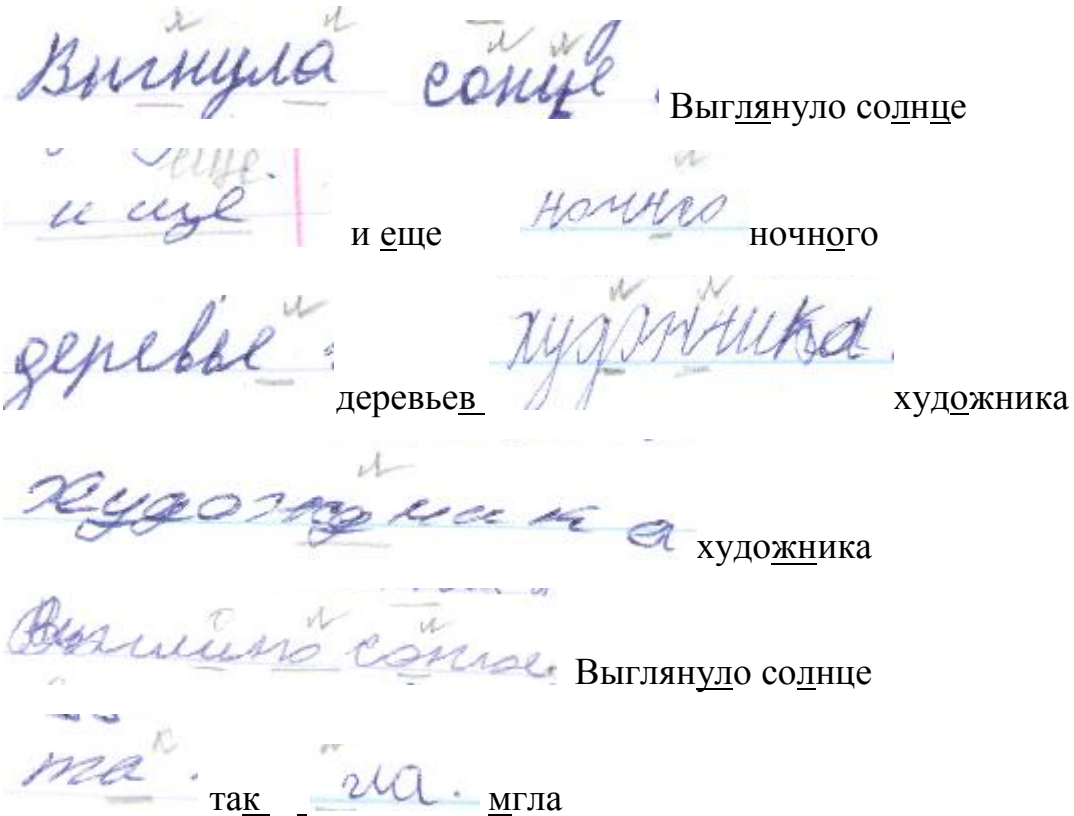 Выгнула сонце. Выглянуло солнце
еще.
и ще и еще ночнго ночного
деревье деревьев худжника художника
художника художника
сонце. Выглянуло солнце
та. так гла. мгла